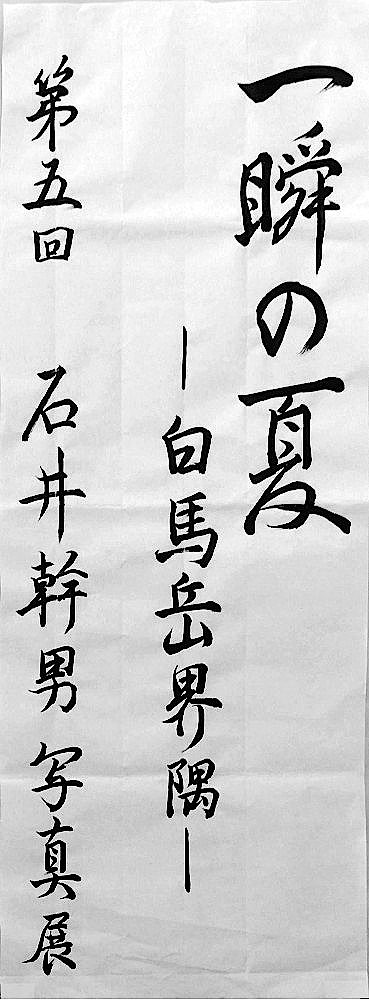 一瞬の夏
―白馬岳界隅―
第五回 石井幹男 写真展